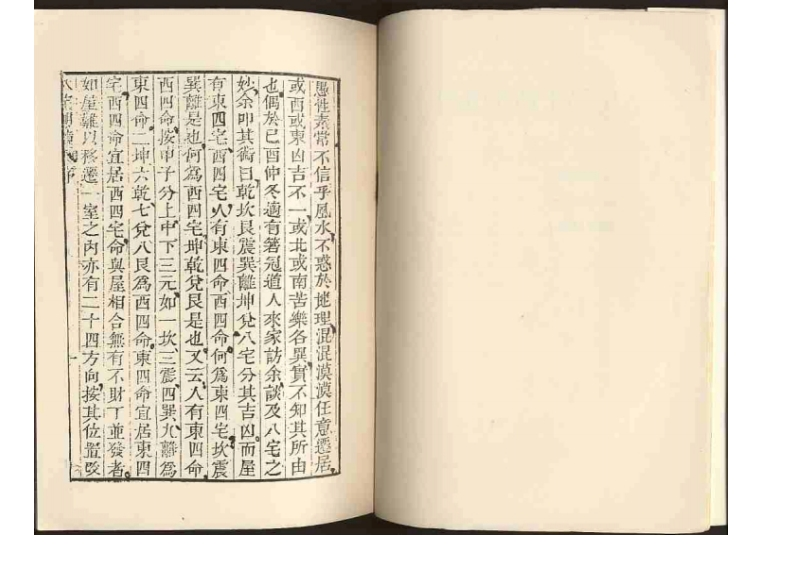 愚性素常不信乎風水不惑於地理混混漠漠任意遷居
或西或東凶吉不一或北或南苦樂各異實不知其所由
也偶於己酉仲冬適有箬冠道人來家訪余談及八宅之
妙余叩其術曰乾坎艮震巽離坤兌八宅分其吉凶而屋
有東四宅西四宅人有東四命西四命何爲東四宅坎震
巽離是也何爲西四宅坤乾兌艮是也又云人有東四命
西四命按甲子分上中下三元如一坎三震四巽九離爲
東四命二坤六乾七兌八艮爲西四命東四命宜居東四
宅西四命宜居西四宅命與屋相合無有不財丁並發者
如屋難以移遷一室之內亦有二十四方向按其位置改
八宅明鏡 序 一